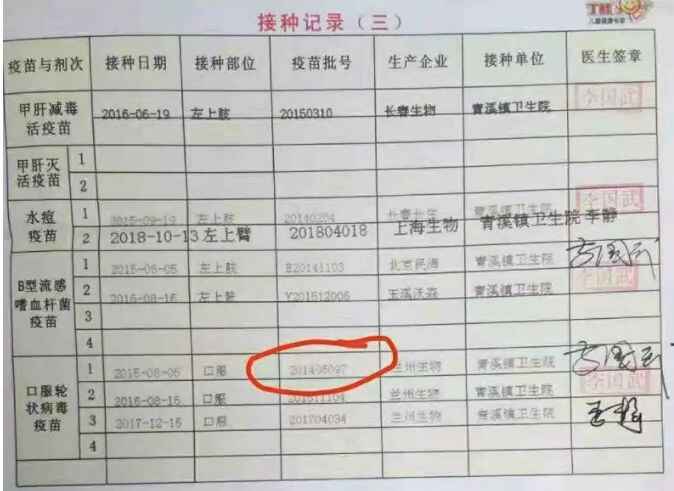 接种记录（三）
疫苗与剂次 接种日期 接种部位 疫苗批号 生产企业 接种单位 医生签章
甲肝减毒活疫苗 2016-06-19 左上肢 20150310 长春生物 青溪镇卫生院 李国武
甲肝灭活疫苗 1
2
水痘疫苗 1 2015-09-19 左上肢 20140204 长春长生 青溪镇卫生院 李国武
2 2018-10-13 左上臂 201804018 上海生物 青溪镇卫生院 李静
B型流感嗜血杆菌疫苗 1 2015-06-05 左上肢 B20141103 北京民海 青溪镇卫生院 李国武
2 2016-08-16 左上肢 Y201512006 玉溪沃森 青溪镇卫生院 李国武
3
4
口服轮状病毒疫苗 1 2015-08-05 口服 201405097 兰州生物 青溪镇卫生院 李国武
2 2016-08-15 口服 201511104 兰州生物 青溪镇卫生院 李国武
3 2017-12-15 口服 201704034 兰州生物 青溪镇卫生院 王超
4